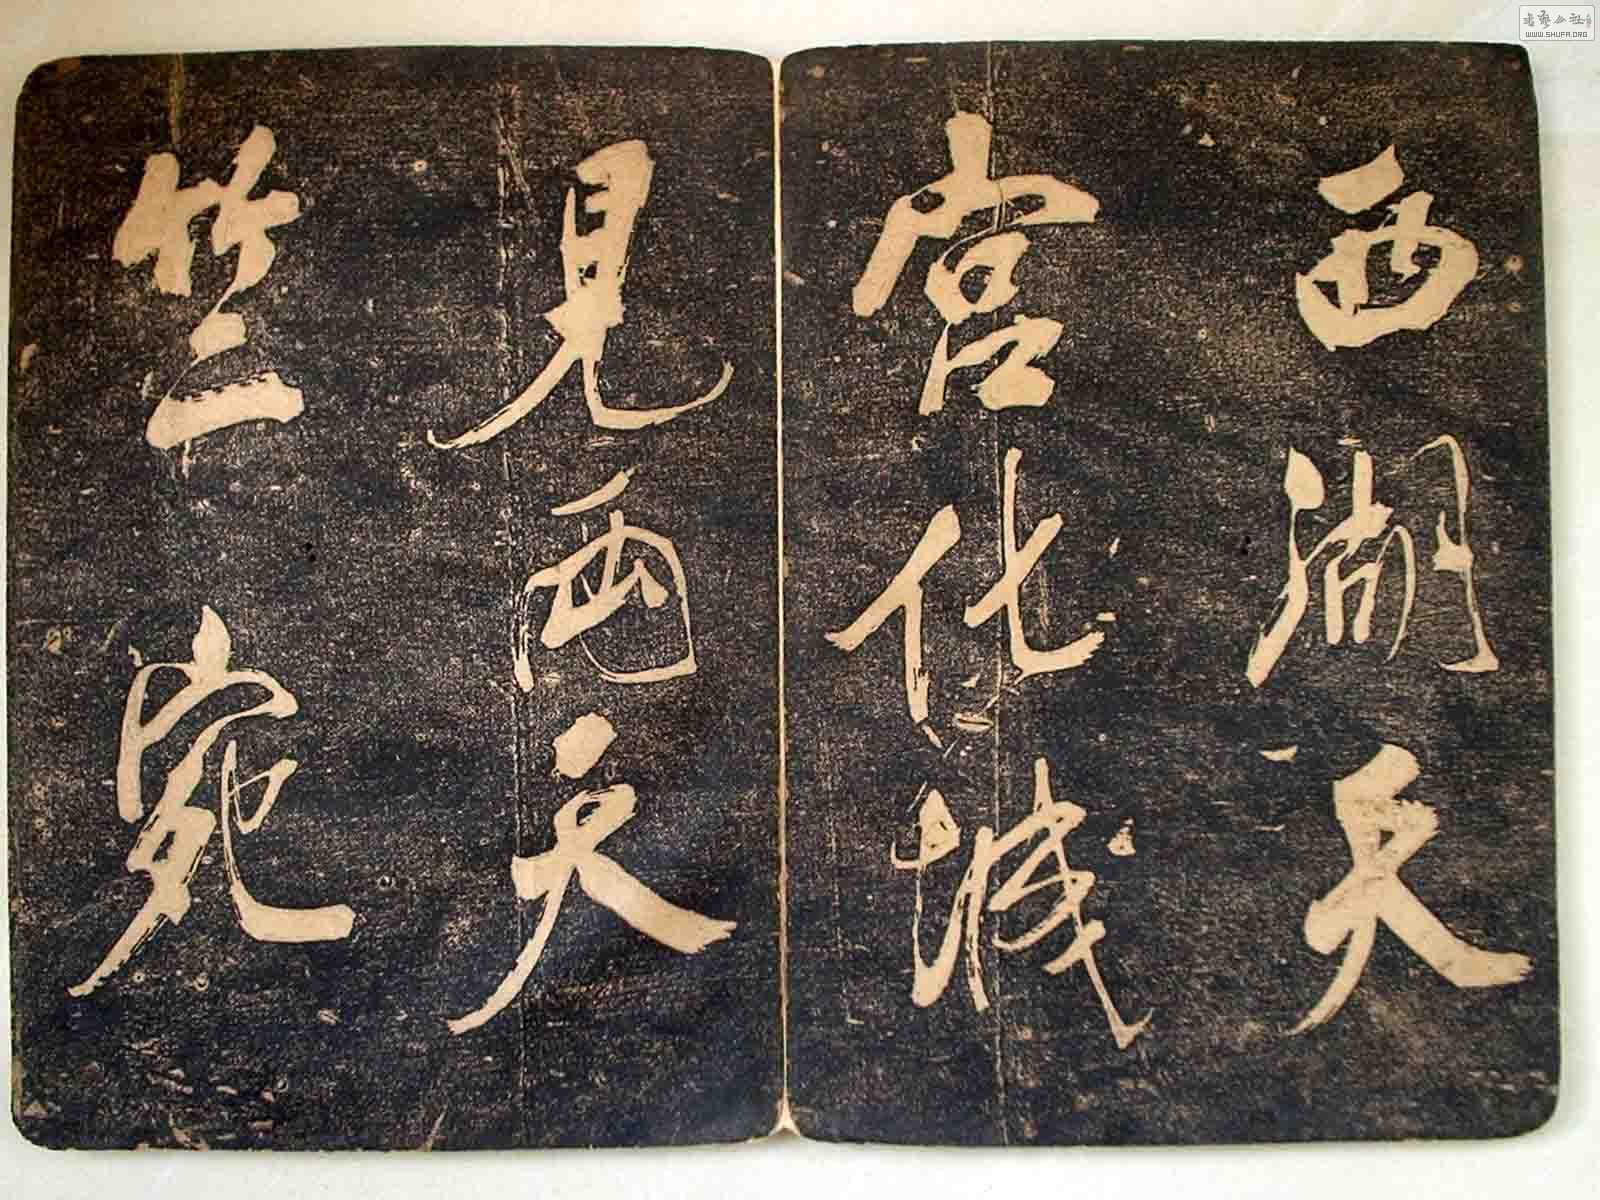 西湖天
宮化城
見西天
竺宛
書藝公社
WWW.SHUFA.ORG